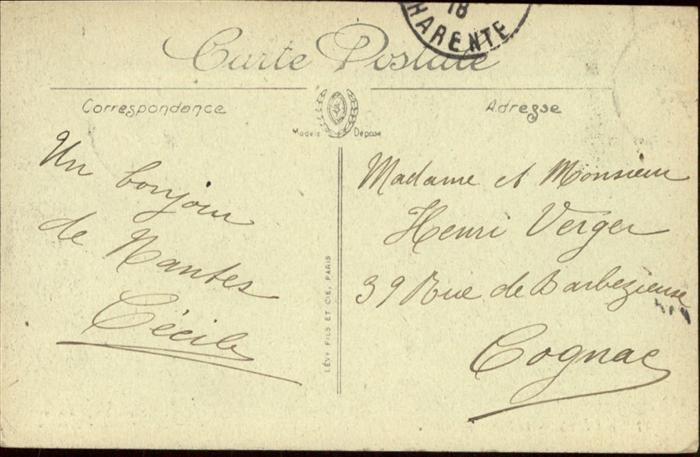 18
HARENTE
Carte Postale
Correspondance
Adresse
Modèle Déposé
Un bonjour
de Nantes
Cécile
LÉVY FILS ET CIE, PARIS
Madame et Monsieur
Henri Verger
39 Rue de Barbezieuse
Cognac